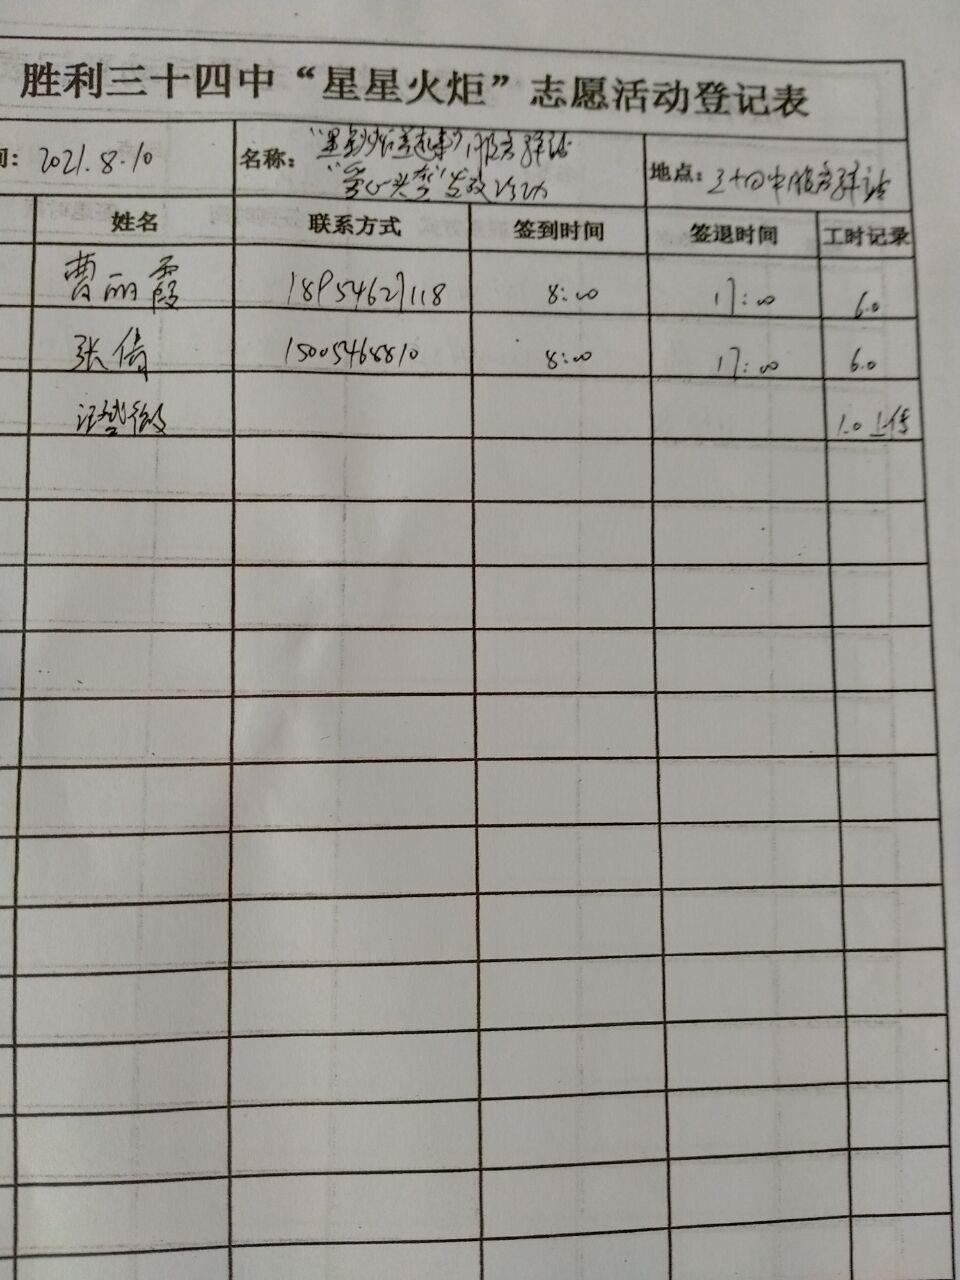 胜利三十四中“星星火炬”志愿活动登记表
间: 2021.8.10 名称: 服务驿站 地点: 三十四中服务驿站
“爱心头盔”发放活动
姓名 联系方式 签到时间 签退时间 工时记录
曹丽霞 18954627118 8:00 17:00 6.0
张倩 15005468810 8:00 17:00 6.0
1.0 上传